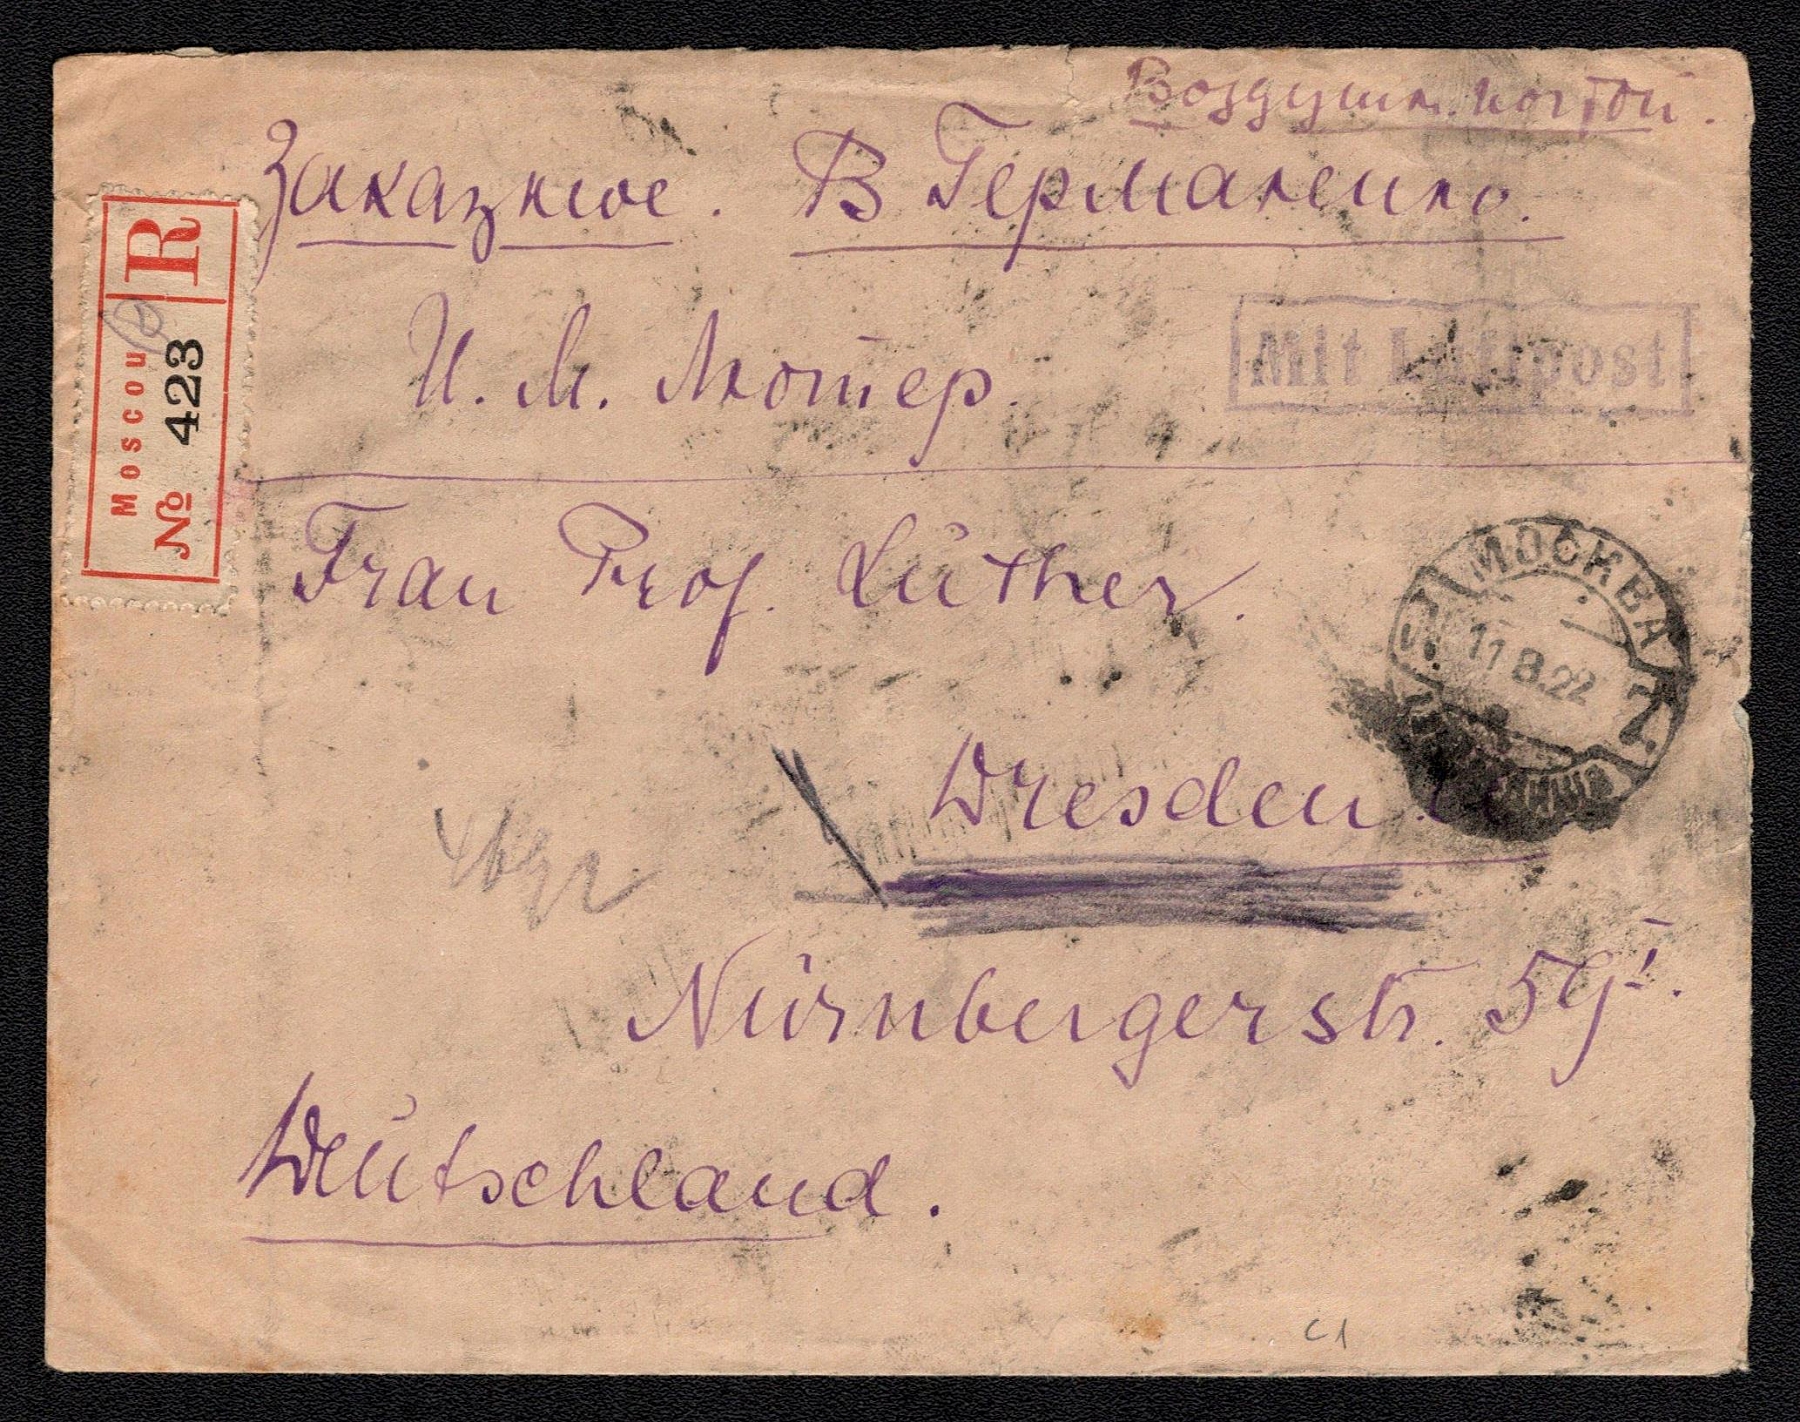 Воздушн. почтой.
Заказное. В Германию.
R
Moscou
№ 423
И. М. Лютер.
Mit Luftpost
Frau Prof. Lüther.
МОСКВА
11 8.22
Dresden
Nürnbergerstr. 59 I.
Deutschland.
C1